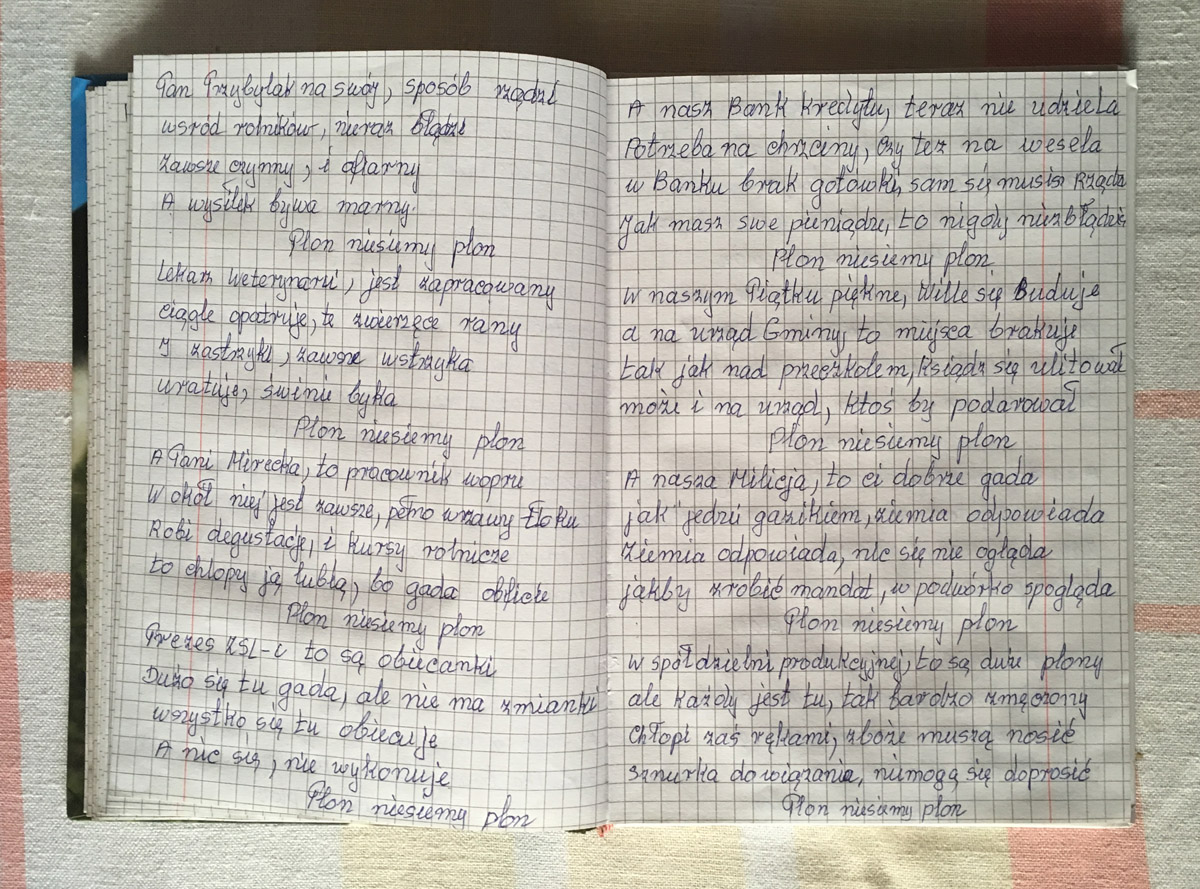 Pan Przybylak na swój, sposób rządzi
wsród rolników, nieraz błądzi
zawsze czynny, i ofiarny
A wysiłek bywa marny.
Plon niesiemy plon
Lekarz weterynarii, jest zapracowany
ciągle opatruje, te zwierzęce rany
I zastrzyki, zawsze wstrzyka
uratuje, świnie byka
Plon niesiemy plon
A Pani Mirecka, to pracownik wopru
W okół niej jest zawsze, pełno wrzawy tłoku
Robi degustacje, i kursy rolnicze
to chłopy ją lubią, bo gada oblicie
Plon niesiemy plon
Prezes ZSL-u to są obiecanki
Dużo się tu gada, ale nie ma zmianki
wszystko się tu obiecuje
A nic się, nie wykonuje.
Plon niesiemy plon
A nasz Bank kredytu, teraz nie udziela
Potrzeba na chrzciny, czy tez na wesela
w Banku brak gotówki, sam się musisz Rządzi
Jak masz swe pieniądze, to nigdy niezbłądzis
Plon niesiemy plon
W naszym Piątku piękne, Wille się Buduje
a na urząd Gminy, to miejsca brakuje
tak jak nad przeczkolem, ksiądz się ulitował
może i na urząd, ktoś by podarował
Plon niesiemy plon
A nasza Milicja, to ci dobrze gada
jak jedzie gazikiem, ziemia odpowiada
Ziemia odpowiada, nic się nie ogląda
jakby zrobić mandat, w podwórko spogląda
Plon niesiemy plon
W spółdzielni produkcyjnej, to są duże plony
ale każdy jest tu, tak bardzo zmęczony
Chłopi zaś rękami, zboże muszą nosić
sznurka do wiązania, niemogą się doprosić
Plon niesiemy plon